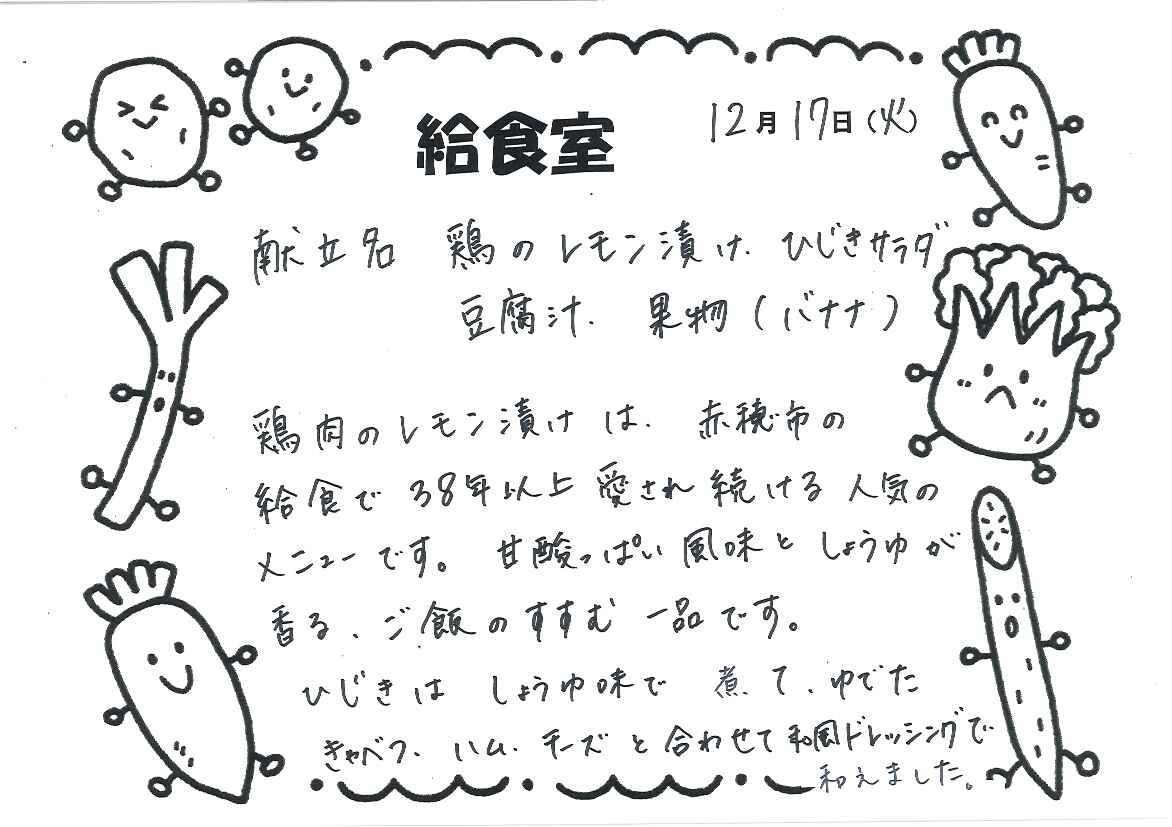 給食室
12月17日(火)
献立名 鶏のレモン漬け、ひじきサラダ
豆腐汁、果物(バナナ)
鶏肉のレモン漬けは、赤穂市の
給食で38年以上愛され続ける人気の
メニューです。甘酸っぱい風味としょうゆが
香る、ご飯のすすむ一品です。
ひじきはしょうゆ味で煮て、ゆでた
きゃべつ、ハム、チーズと合わせて和風ドレッシングで
和えました。